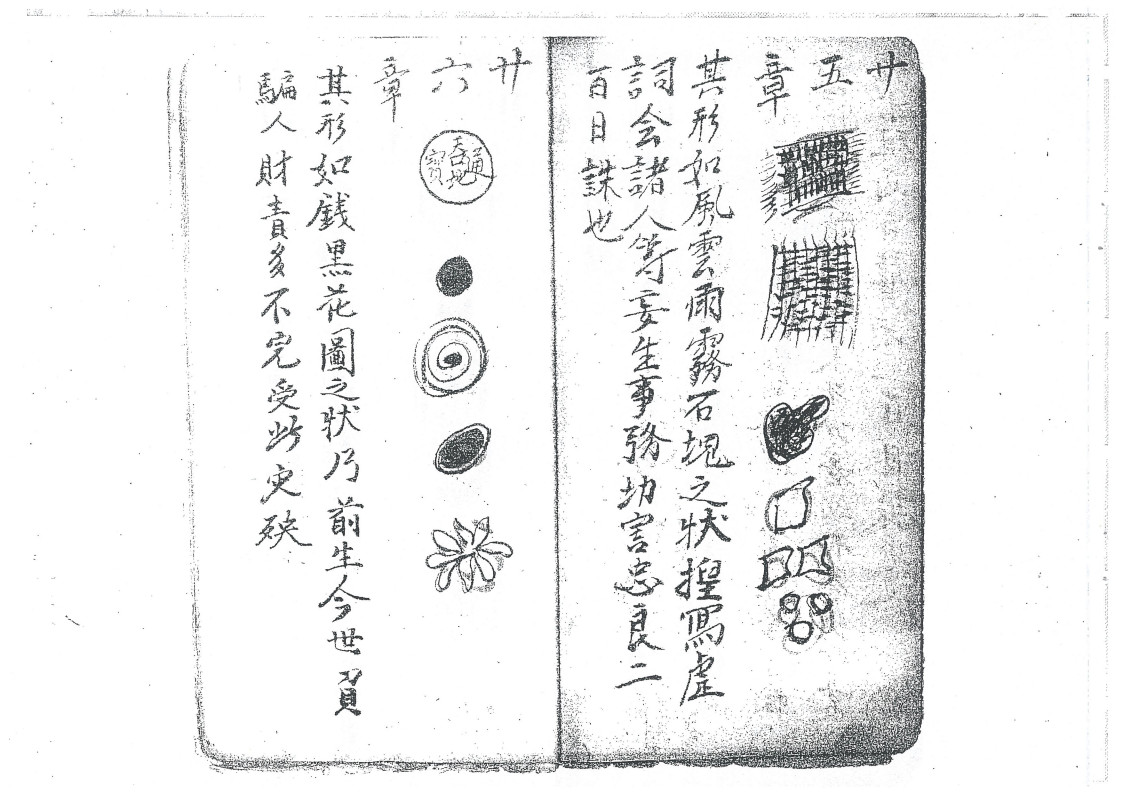 廿五章
其形如風雲雨霧石塊之狀揑寫虛
詞会諸人等妄生事務功害忠良二
百日誅也
廿六章
天地通寶
其形如銭黒花圖之狀乃前生今世負
騙人財責多不完受此灾殃